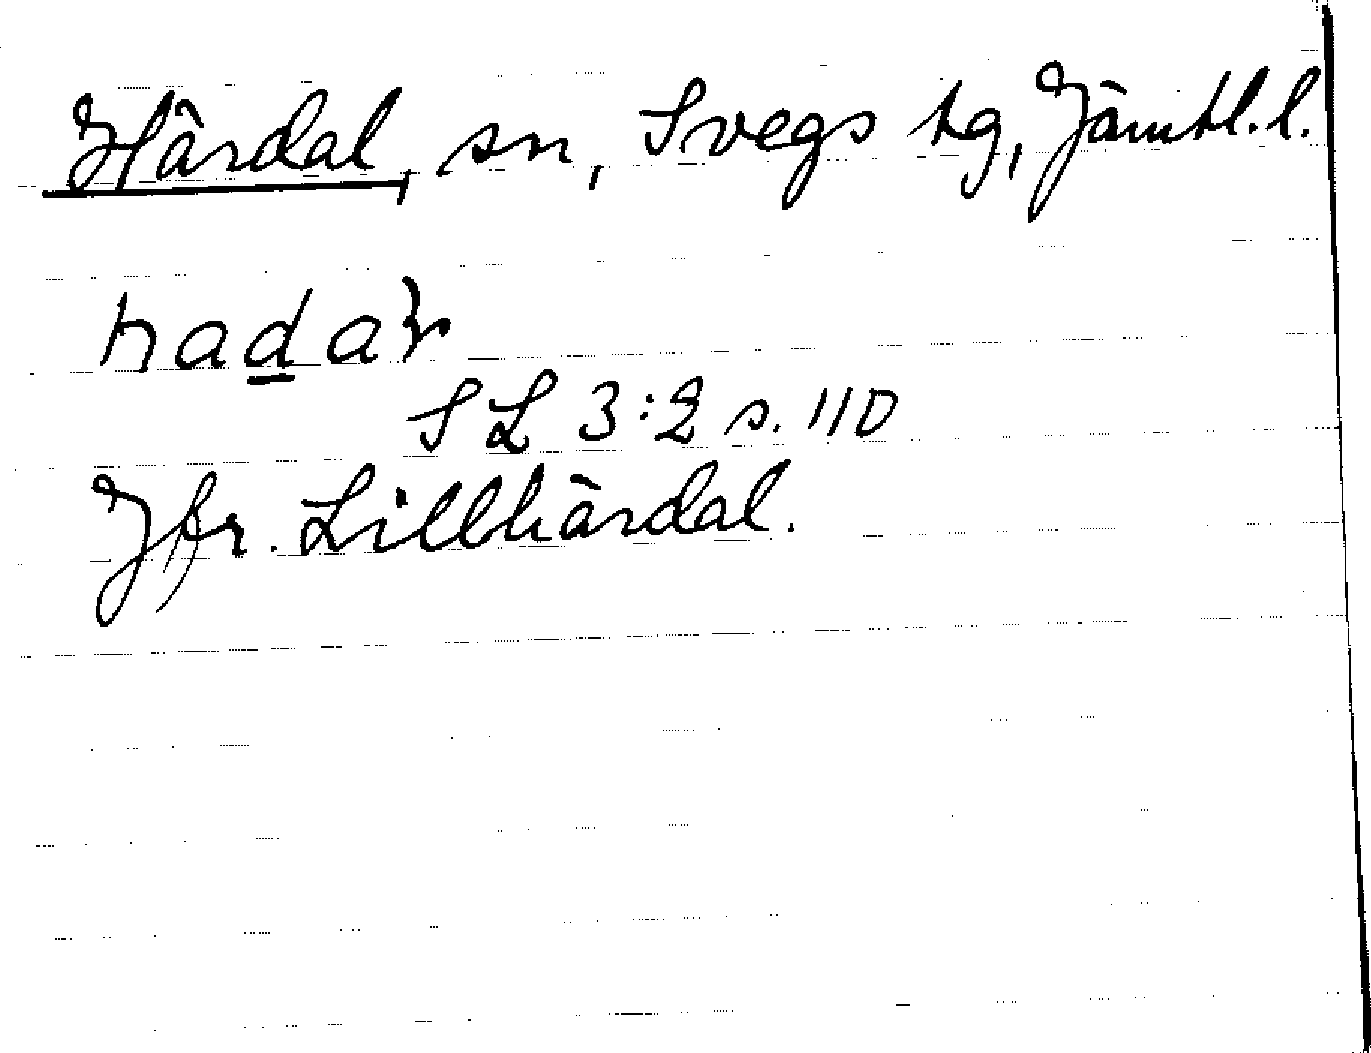 Härdal, sn, Svegs tg, Jämtl.l.
hada
SL 3:2 s. 110
Jfr. Lillhärdal.